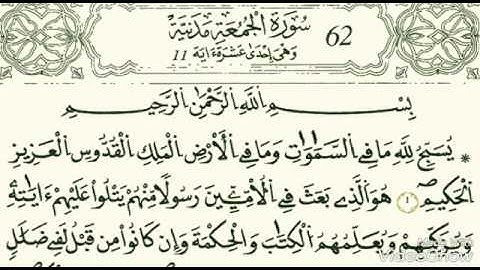 سُورَةُ الجُمُعَةِ مَدَنِيَّة
62
وَهْيَ إِحْدَى عَشْرَةَ ءَايَة 11
بِسْمِ اللَّهِ الرَّحْمَنِ الرَّحِيمِ
يُسَبِّحُ لِلَّهِ مَا فِي السَّمَوَاتِ وَمَا فِي الْأَرْضِ الْمَلِكِ الْقُدُّوسِ الْعَزِيزِ
الْحَكِيمِ ١ هُوَ الَّذِي بَعَثَ فِي الْأُمِّيِّينَ رَسُولًا مِنْهُمْ يَتْلُوا عَلَيْهِمْ ءَايَاتِهِ
وَيُزَكِّيهِمْ وَيُعَلِّمُهُمُ الْكِتَابَ وَالْحِكْمَةَ وَإِن كَانُوا مِن قَبْلُ لَفِي ضَلَالٍ
VIDEOSHOW